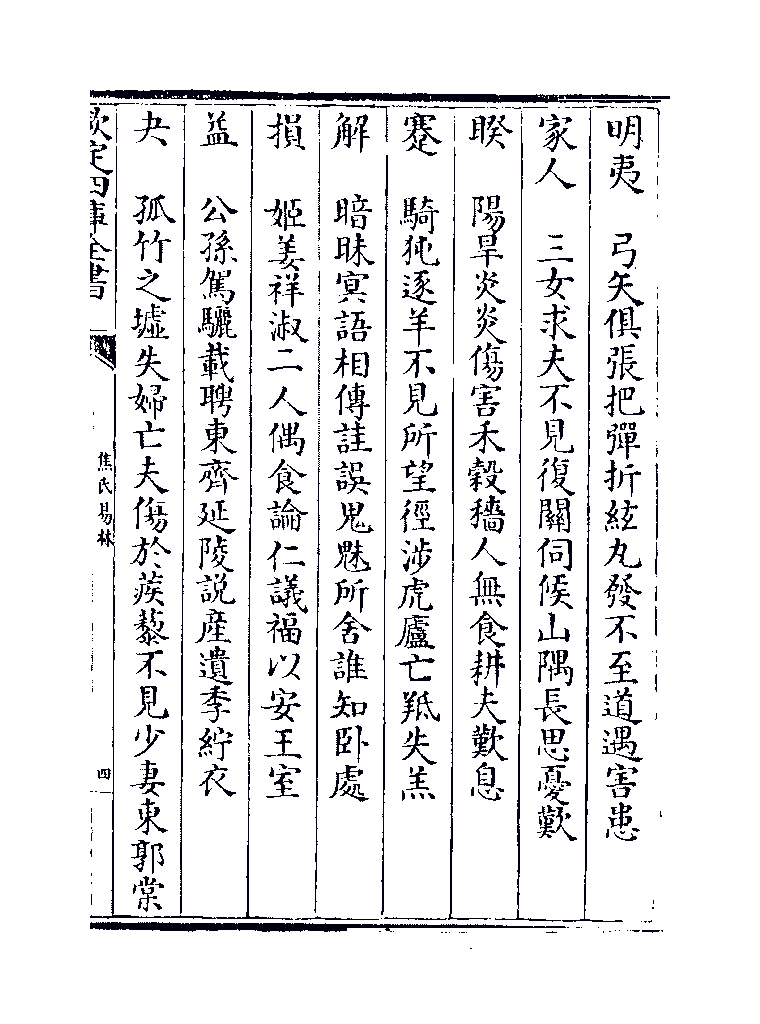 明夷　弓矢俱張把彈折絃丸發不至道遇害患
家人　三女求夫不見復關伺候山隅長思憂歎
睽　陽旱炎炎傷害禾穀穡人無食耕夫歎息
蹇　騎㹠逐羊不見所望徑涉虎廬亡羝失羔
解　暗昧冥語相傳詿誤鬼魅所舍誰知卧處
損　姬姜祥淑二人偶食論仁議福以安王室
益　公孫駕驪載聘東齊延陵說產遺季紵衣
夬　孤竹之墟失婦亡夫傷於蒺藜不見少妻東郭棠
欽定四庫全書
焦氏易林
四